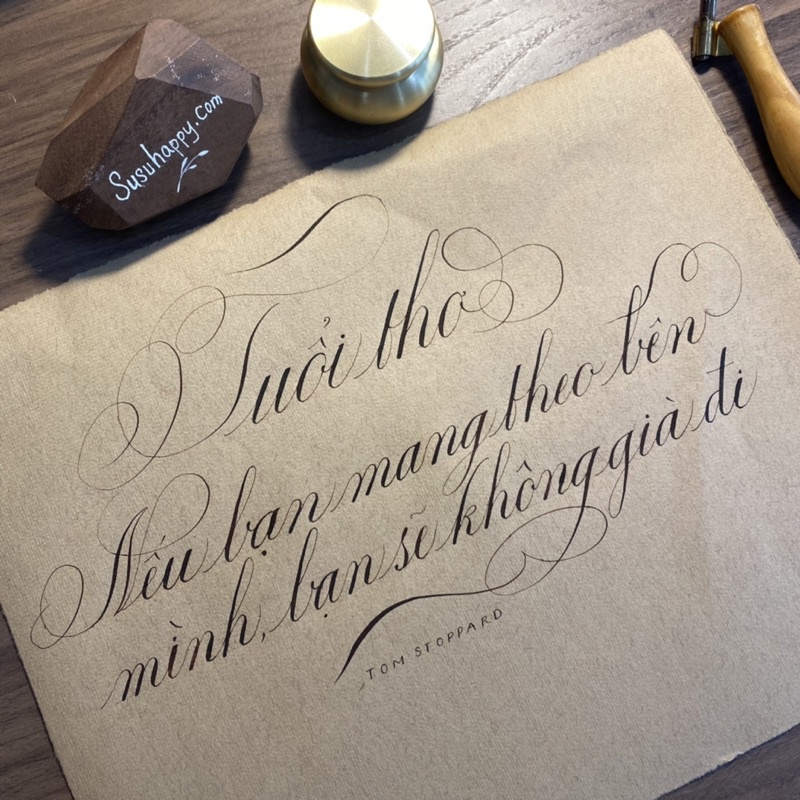 Susuhappy.com
Tuổi thơ
Nếu bạn mang theo bên
mình, bạn sẽ không già đi
TOM STOPPARD